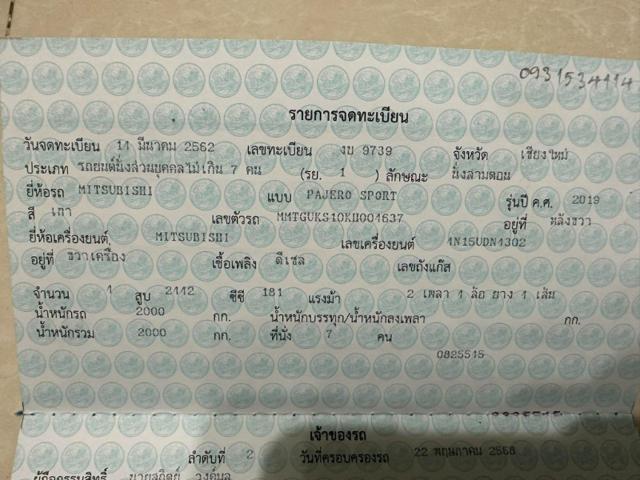 0931534414
รายการจดทะเบียน
วันจดทะเบียน 14 มีนาคม 2562 เลขทะเบียน งบ 9739 จังหวัด เชียงใหม่
ประเภท รถยนต์นั่งส่วนบุคคลไม่เกิน 7 คน (รย. 1 ) ลักษณะ นั่งสามตอน
ยี่ห้อรถ MITSUBISHI แบบ PAJERO SPORT รุ่นปี ค.ศ. 2019
สี เทา เลขตัวรถ MMTGUKS10KH004637 อยู่ที่ หลังขวา
ยี่ห้อเครื่องยนต์ MITSUBISHI เลขเครื่องยนต์ 4N15UDN4302
อยู่ที่ ขวาเครื่อง เชื้อเพลิง ดีเซล เลขถังแก๊ส
จำนวน 4 สูบ 2442 ซีซี 181 แรงม้า 2 เพลา 4 ล้อ ยาง 4 เส้น
น้ำหนักรถ 2000 กก. น้ำหนักบรรทุก/น้ำหนักลงเพลา กก.
น้ำหนักรวม 2000 กก. ที่นั่ง 7 คน
0825515
เจ้าของรถ
ลำดับที่ 2 วันที่ครอบครองรถ 22 พฤษภาคม 2568
ผู้ถือกรรมสิทธิ์